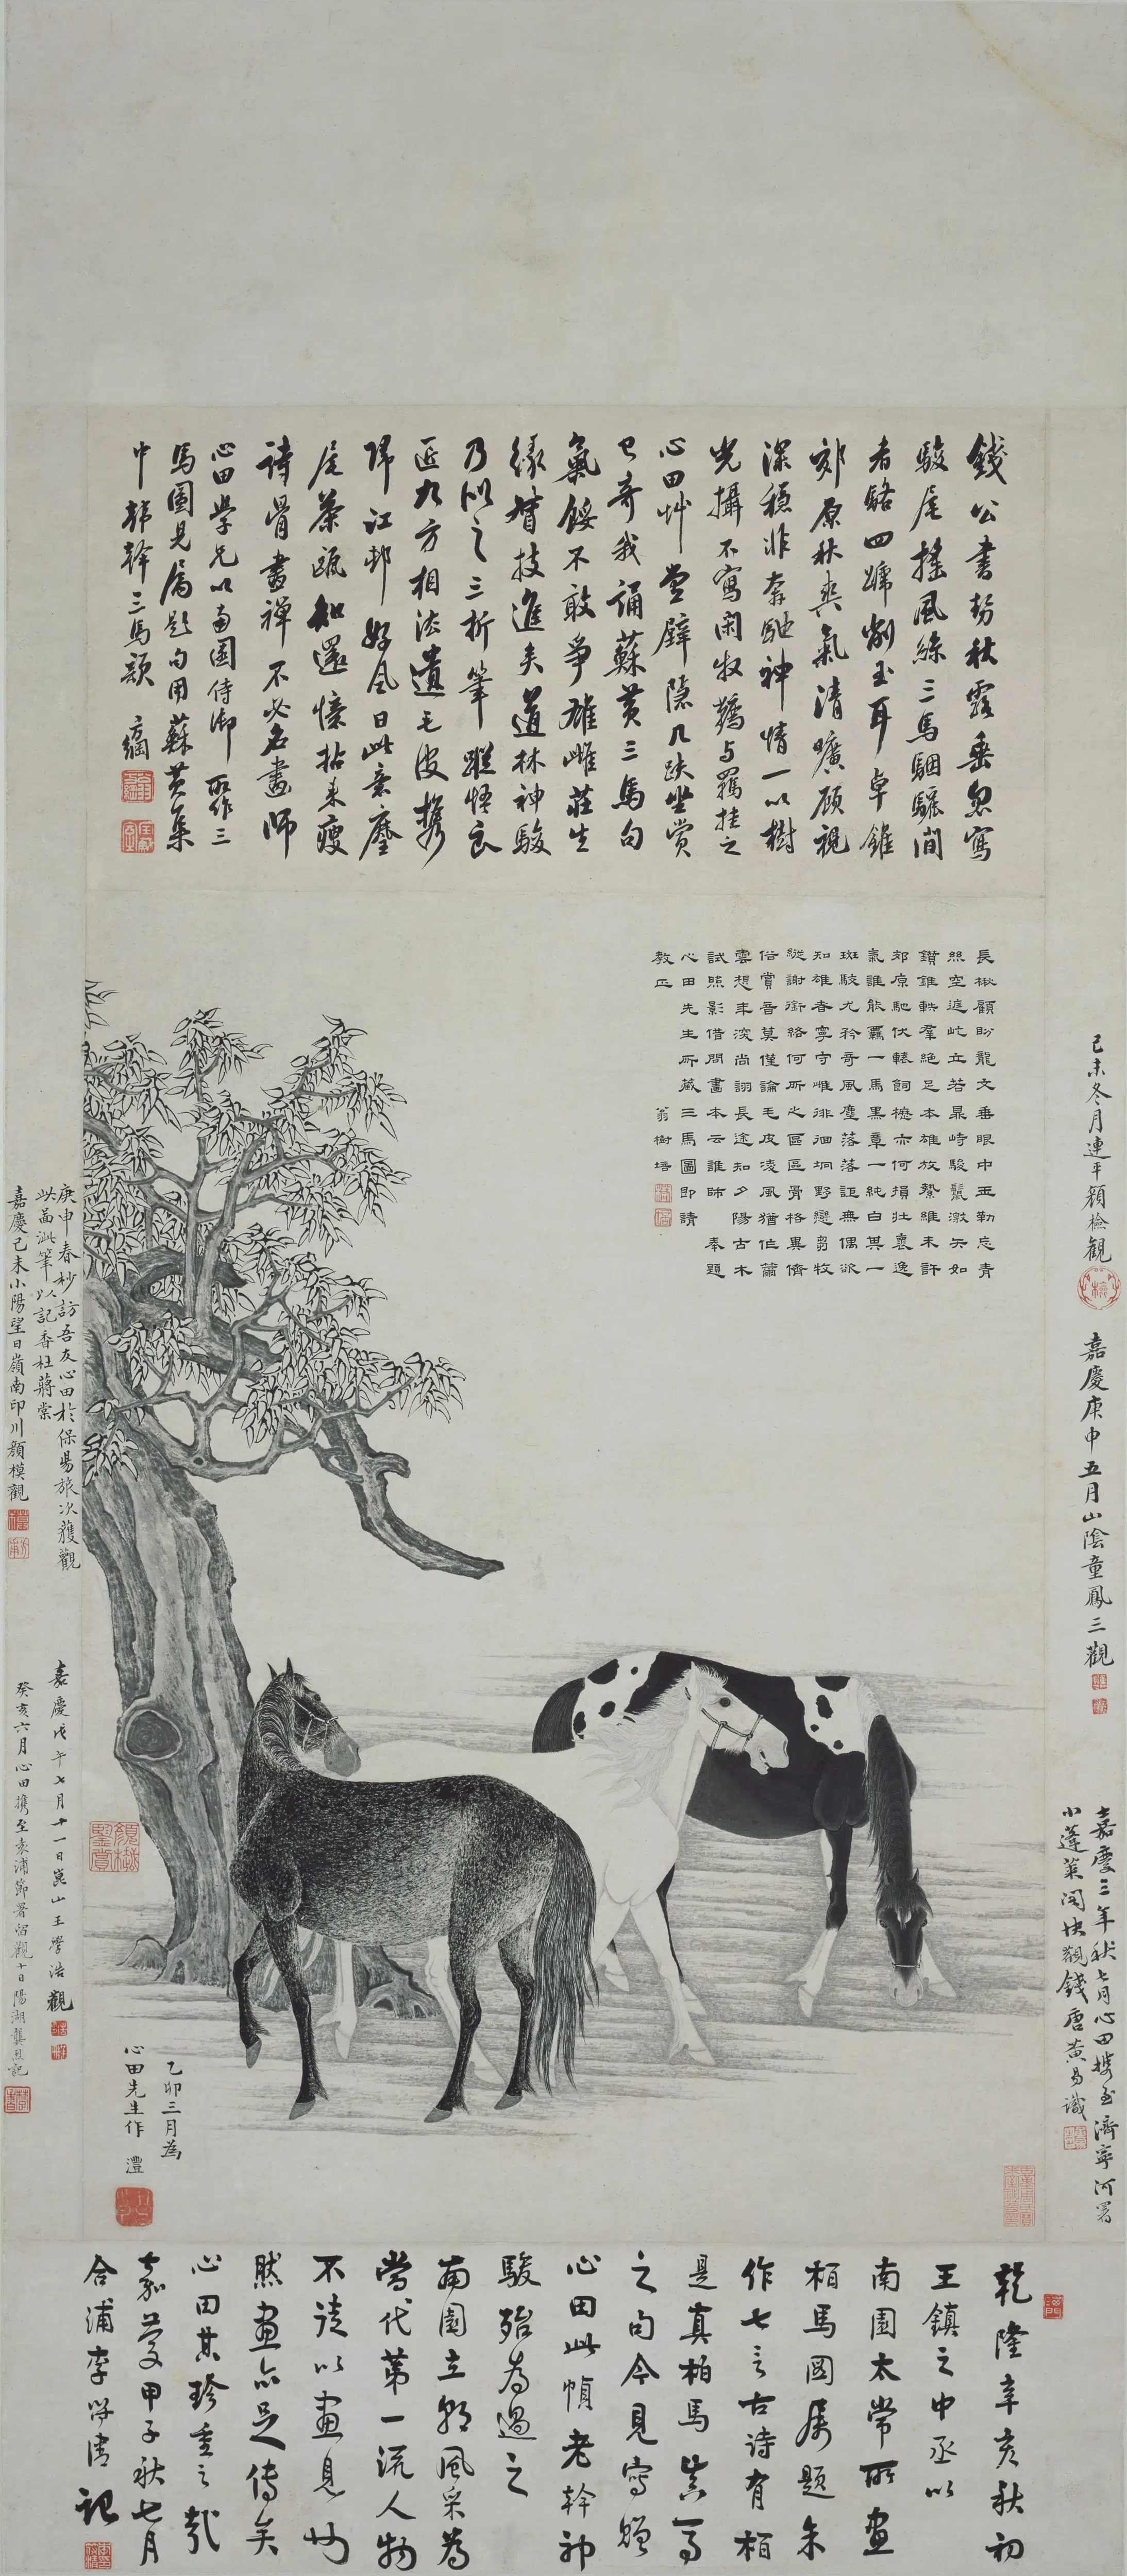 錢公書勢秋露垂忽寫
駿尾搖風絲三馬駰驪間
者駱四蹄削玉耳卓錐
郊原秋爽氣清曠顧視
深穩非奔馳神情一以樹
光攝不寫閑牧鞿与羈挂之
心田草堂壁隱几趺坐賞
已奇我誦蘇黃三馬句
氣餒不敢爭雄雌莊生
緣督技進矣道林神駿
乃似之三折筆蹤悟良
匠九方相法遺毛皮攜
歸江邨好風日此意塵
尾茶甌知還憶拈來瘦
詩骨畫禪不必名畫師
心田學兄以南園侍御所作三
馬圖見屬題句用蘇黃集
中韓幹三馬韻 方綱
長楸顧盼龍文垂眼中玉勒忘青
絲空遮屹立若鼎峙駿鬣激矢如
鑽錐軼羣絕足本雄放縶維未許
郊原馳伏轅飼櫪亦何損壯裏逸
氣誰能羈一馬黑章一純白其一
斑駮尤矜奇風塵落落詎無偶欲
知雄者寧守雌徘徊坰野戀芻牧
縱謝銜絡何所之區區骨格異儕
俗賞音莫僅論毛皮凌風猶作蕭
雲想年深尚詡長途知夕陽古木
試照影借問畫本云誰師 奉題
心田先生所藏三馬圖即請
教正 翁樹培
己未冬月連平顏檢觀
嘉慶庚申五月山陰童鳳三觀
嘉慶三年秋七月心田攜至濟寧河署
小蓬萊閣快觀錢唐黃易識
庚申春杪訪吾友心田於保昜旅次獲觀
此畵泚筆以記香杜蔣棠
嘉慶己未小陽望日嶺南印川顏模觀
嘉慶戊午七月十一日崑山王學浩觀
癸亥六月心田攜至袁浦節署留觀十日陽湖龔烈記
乙卯三月為
心田先生作 灃
乾隆辛亥秋初
王鎮之中丞以
南園太常所畫
柏馬圖屬題余
作七言古詩有柏
是真柏馬真馬
之句今見寫贈
心田此幀老幹神
駿殆為過之
南園立朝風采為
當代第一流人物
不徒以畫見也
然畫亦足傳矣
心田其珍重之哉
嘉慶甲子秋七月
合浦李符清記